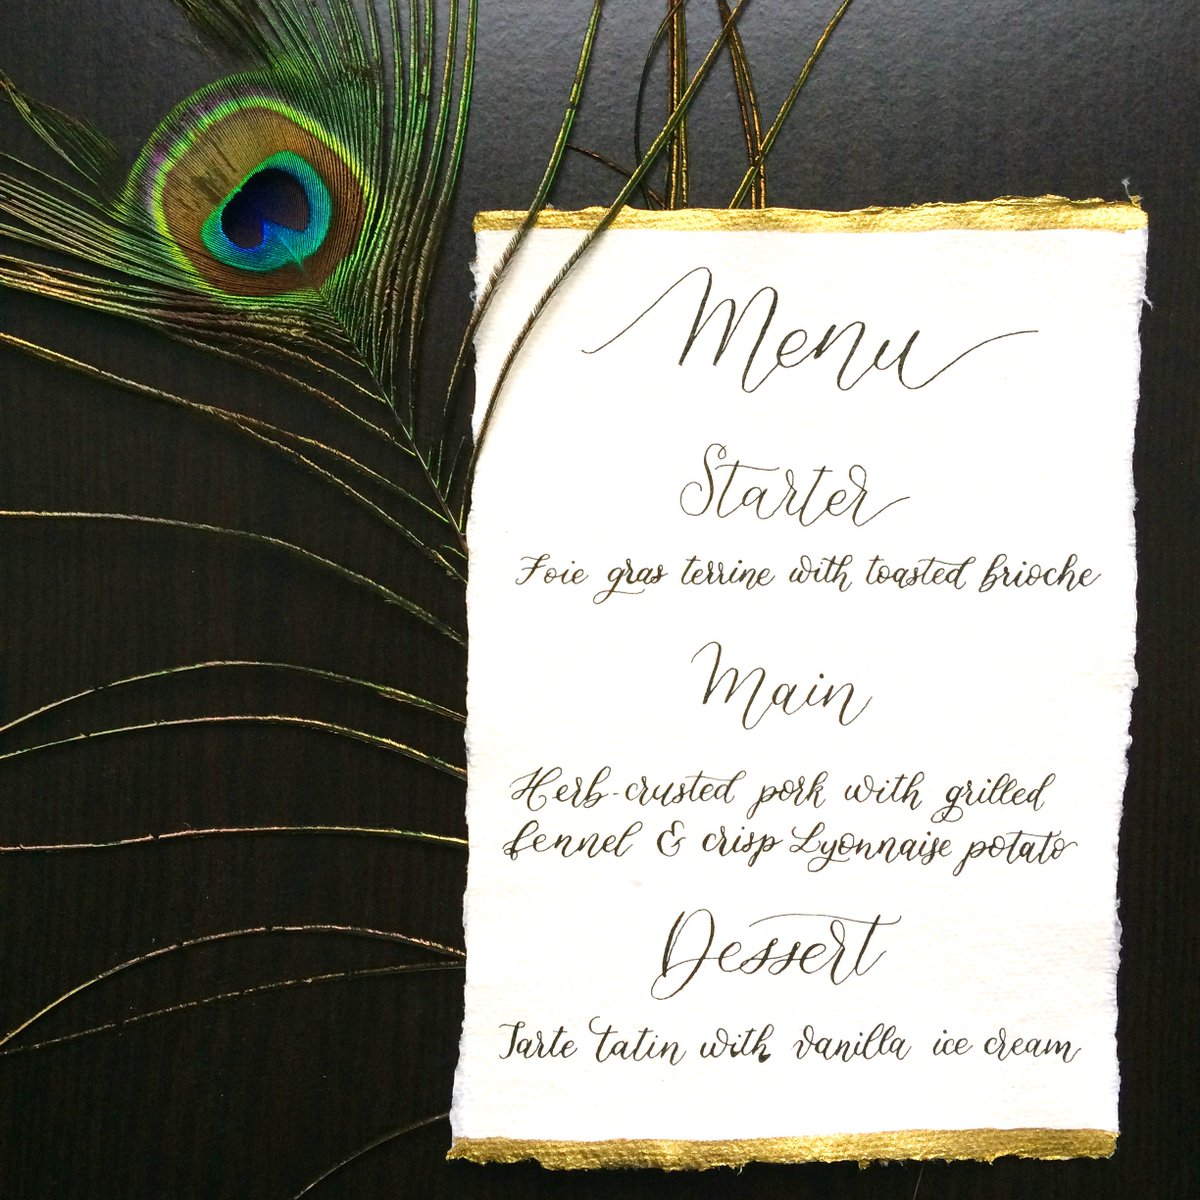 Menu
Starter
Foie gras terrine with toasted brioche
Main
Herb-crusted pork with grilled
fennel & crisp Lyonnaise potato
Dessert
Tarte tatin with vanilla ice cream